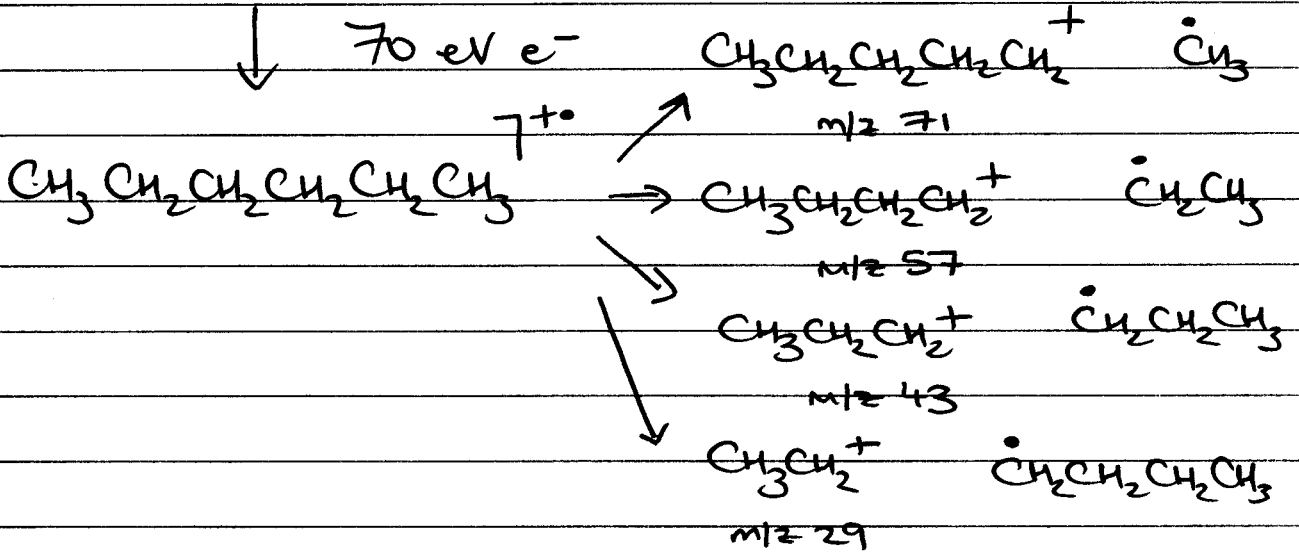 70 eV e⁻
CH₃CH₂CH₂CH₂CH₂⁺ ĊH₃
m/z 71
CH₃CH₂CH₂CH₂CH₂CH₃ ⌉⁺•
CH₃CH₂CH₂CH₂⁺ ĊH₂CH₃
m/z 57
CH₃CH₂CH₂⁺ ĊH₂CH₂CH₃
m/z 43
CH₃CH₂⁺ ĊH₂CH₂CH₂CH₃
m/z 29